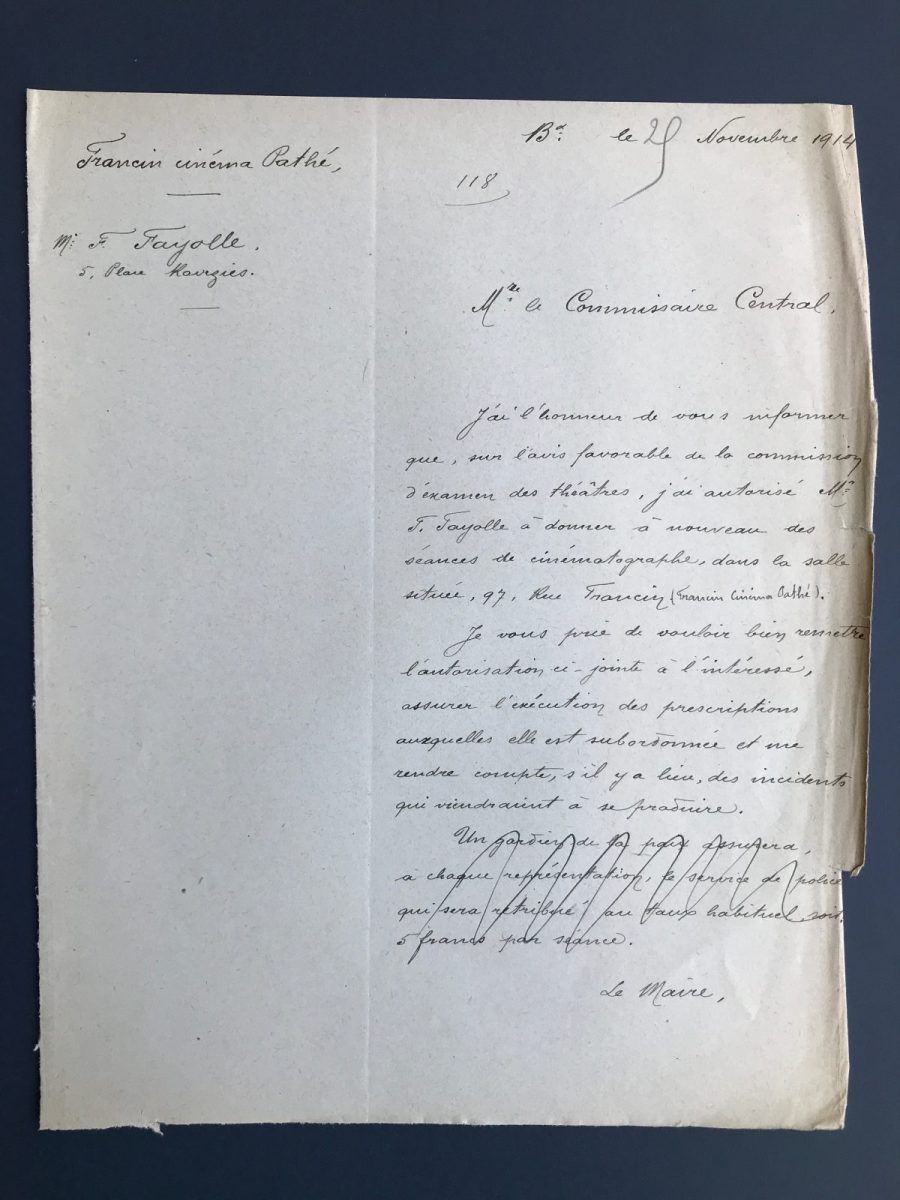 Francin cinéma Pathé,
Mr F. Fayolle.
5, Place
Bx. le 25 Novembre 1914
118
Mre le Commissaire Central.
J'ai l'honneur de vous informer
que, sur l'avis favorable de la commission
d'examen des théâtres, j'ai autorisé Mr
F. Fayolle à donner à nouveau des
séances de cinématographe, dans la salle
située, 97, Rue Francin (Francin Cinéma Pathé).
Je vous prie de vouloir bien remettre
l'autorisation ci-jointe à l'intéressé,
assurer l'exécution des prescriptions
auxquelles elle est subordonnée et me
rendre compte, s'il y a lieu, des incidents
qui viendraient à se produire.
Un gardien de la paix assurera,
à chaque représentation, le service de police
qui sera retribué au taux habituel, soit
5 francs par séance.
Le Maire,